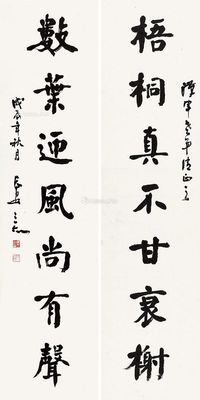 梧桐真不甘衰榭
數葉迎風尚有聲
戊辰年秋月